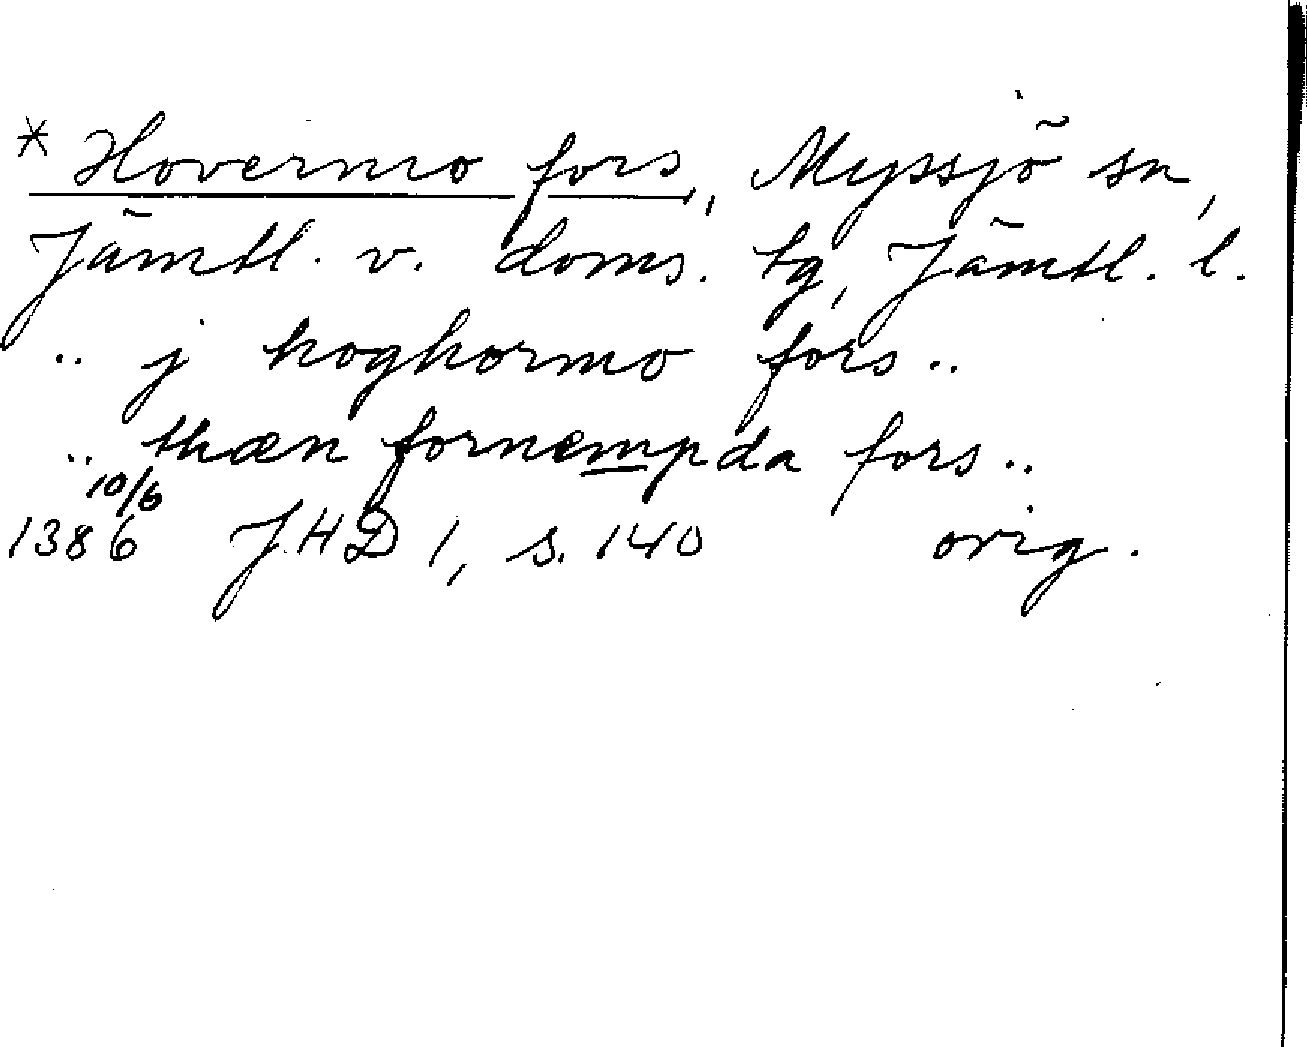 * Hovermo fors, Myssjö sn,
Jämtl. v. doms. tg, Jämtl. l.
.. j hoghormo fors ..
.. thæn fornempda fors ..
10/6
1386 JHD 1, s. 140 orig.